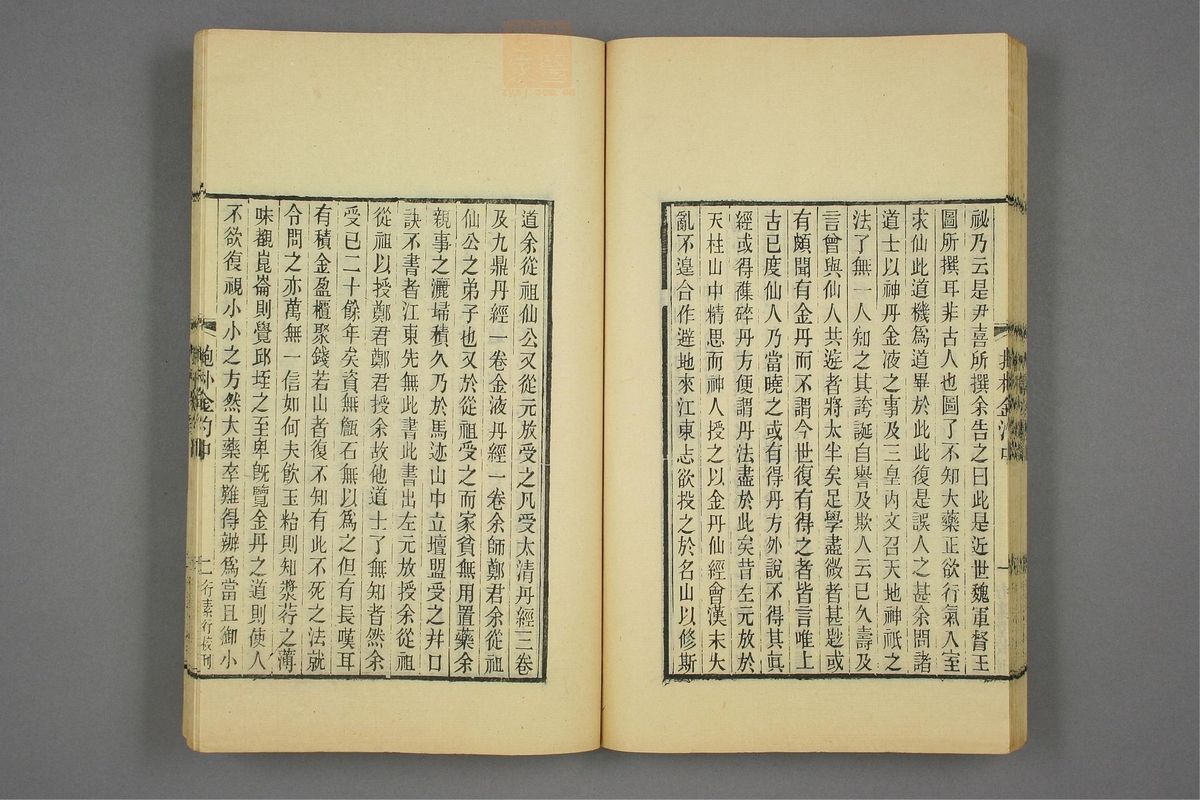 祕乃云是尹喜所撰余告之曰此是近世魏軍督王
圖所撰耳非古人也圖了不知大藥正欲行氣入室
求仙此道機爲道畢於此此復是誤人之甚余問諸
道士以神丹金液之事及三皇內文召天地神祇之
法了無一人知之其誇誕自譽及欺人云已久壽及
言曾與仙人共遊者將太半矣足學盡微者甚尠或
有頗聞有金丹而不謂今世復有得之者皆言唯上
古已度仙人乃當曉之或有得丹方外說不得其眞
經或得雜碎丹方便謂丹法盡於此矣昔左元放於
天柱山中精思而神人授之以金丹仙經會漢末大
亂不遑合作避地來江東志欲投之於名山以修斯
道余從祖仙公又從元放受之凡受太清丹經三卷
及九鼎丹經一卷金液丹經一卷余師鄭君余從祖
仙公之弟子也又於從祖受之而家貧無用置藥余
親事之灑埽積久乃於馬迹山中立壇盟受之幷口
訣不書者江東先無此書此書出左元放授余從祖
從祖以授鄭君鄭君授余故他道士了無知者然余
受已二十餘年矣資無甔石無以爲之但有長嘆耳
有積金盈櫃聚錢若山者復不知有此不死之法就
令問之亦萬無一信如何夫飮玉粭則知漿荇之薄
味覩崑崙則覺邱垤之至卑旣覽金丹之道則使人
不欲復視小小之方然大藥卒難得辦爲當且御小
二 行素行校刊